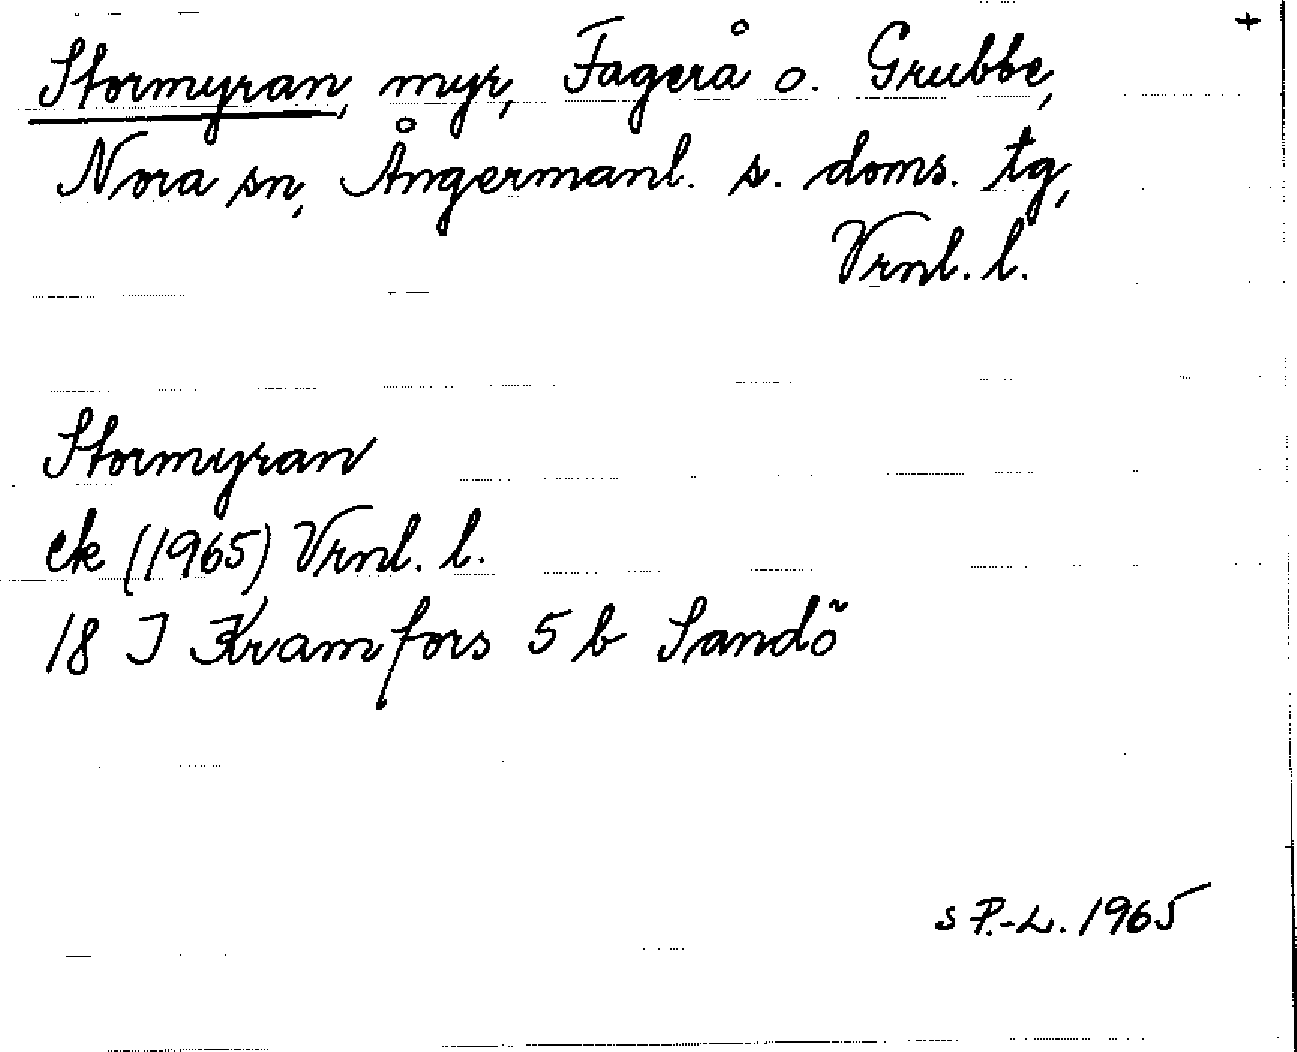 +
Stormyran, myr, Fagerå o. Grubbe,
Nora sn, Ångermanl. s. doms. tg,
Vrnl. l.
Stormyran
ek (1965) Vrnl. l.
18 I Kramfors 5 b Sandö
s P.-L. 1965